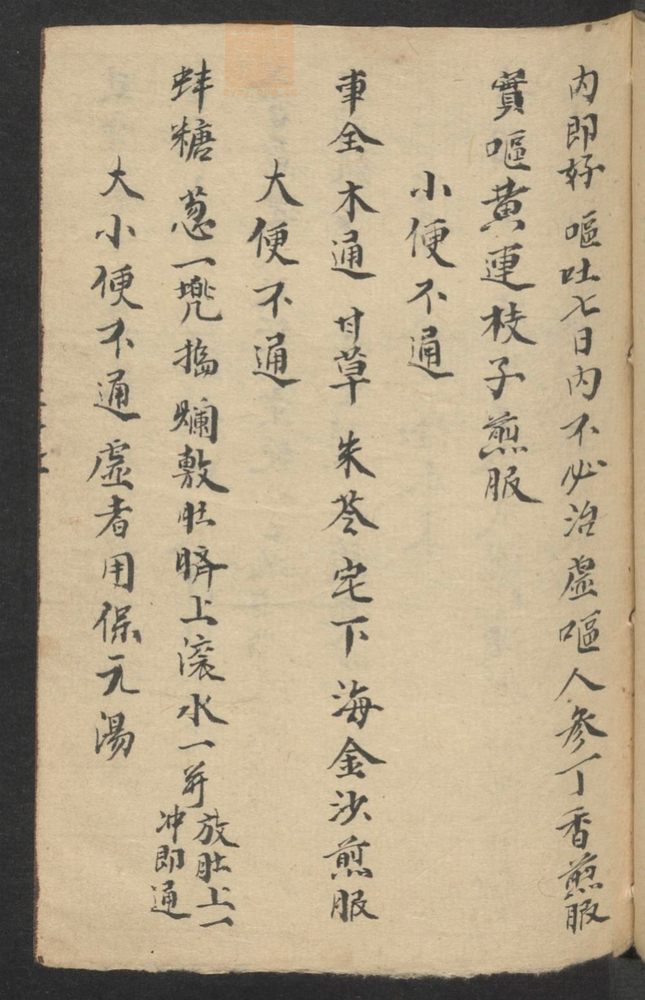 内即好 嘔吐七日内不必治 虛嘔人參丁香煎服
實嘔黄連枝子煎服
小便不通
車全木通甘草朱苓宅下海金沙煎服
大便不通
蚌糖葱一兠搗爛敷肚臍上滚水一并
放肚上一
冲即通
大小便不通虛者用保元湯